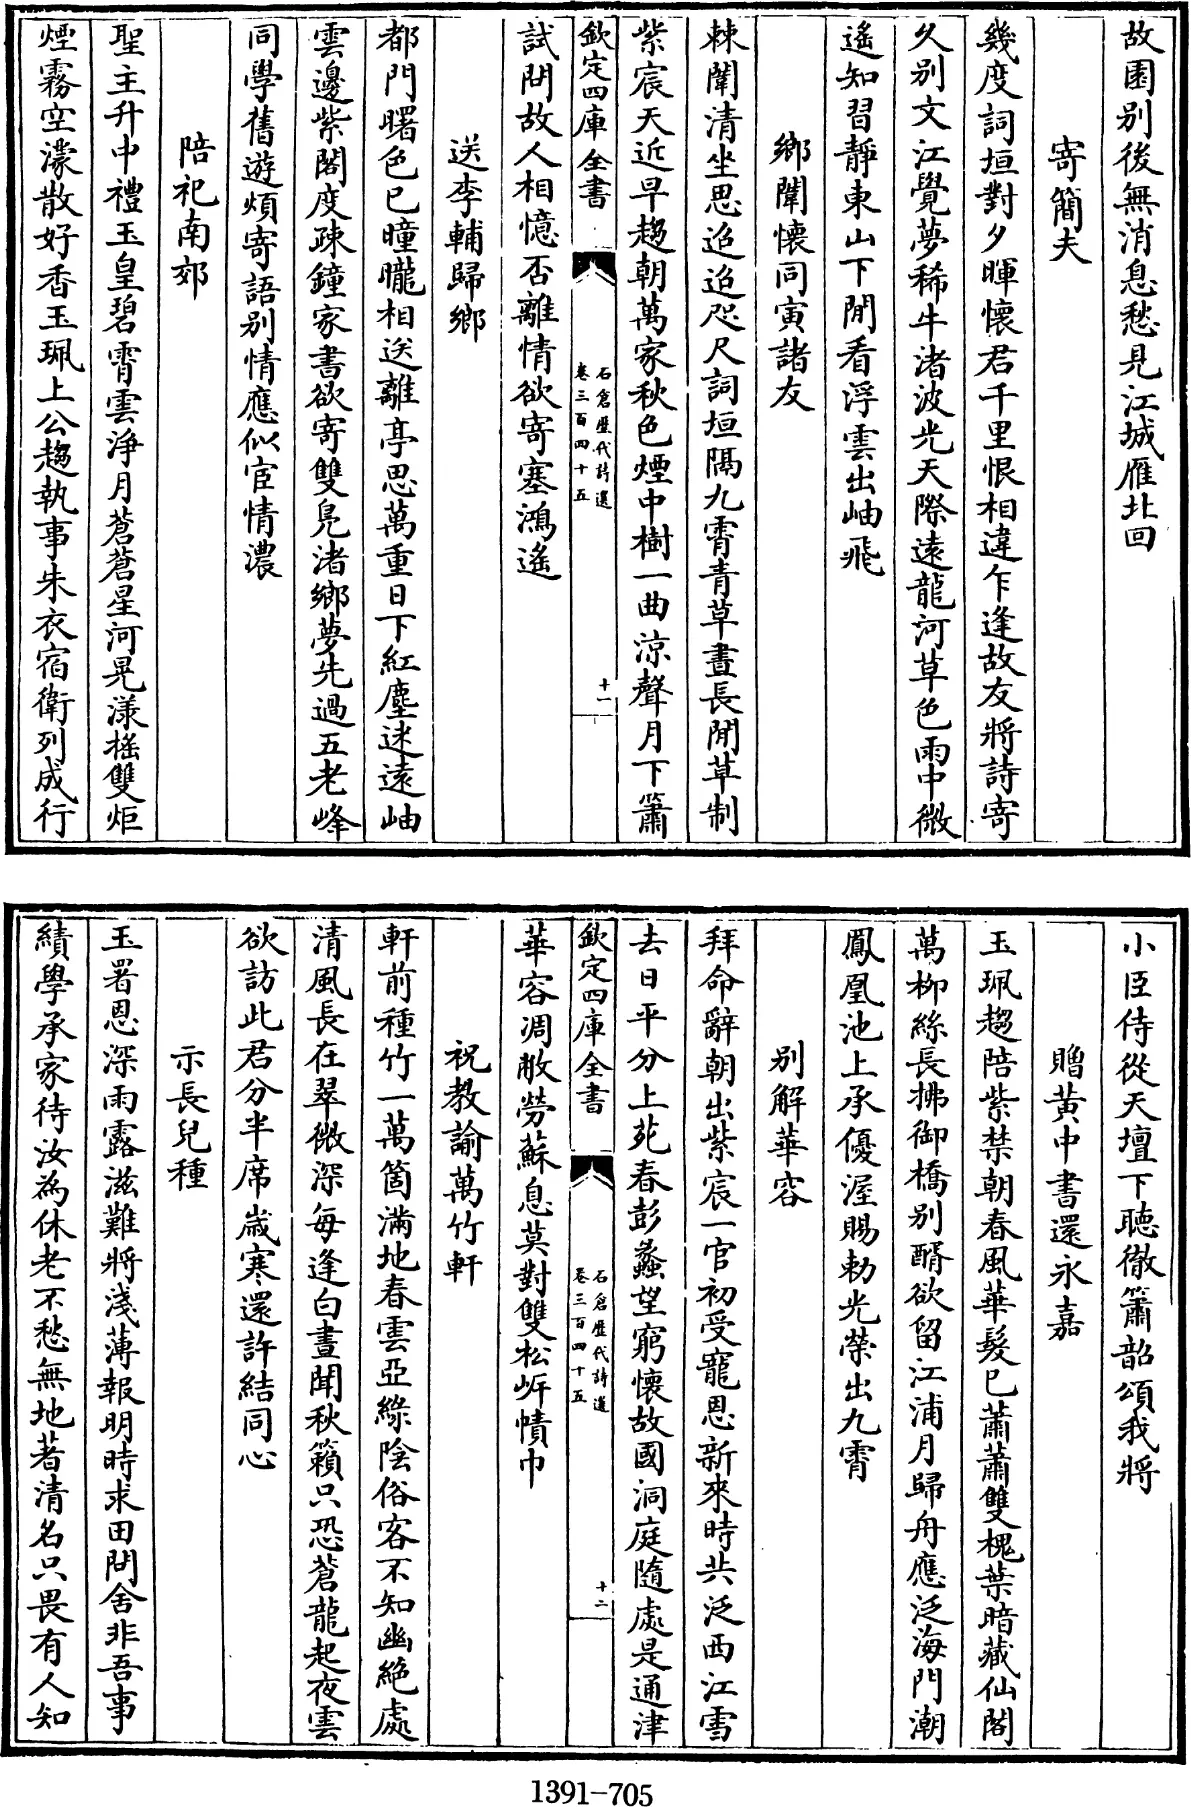 故園别後無消息愁見江城雁北回
寄簡夫
幾度詞垣對夕暉懷君千里恨相違乍逢故友將詩寄
久别文江覺夢稀牛渚波光天際遠龍河草色雨中微
遙知習靜東山下閒看浮雲出岫飛
鄉闈懷同寅諸友
棘闈清坐思迢迢咫尺詞垣隔九霄青草晝長閒草制
紫宸天近早趨朝萬家秋色煙中樹一曲涼聲月下簫
欽定四庫全書
石倉歷代詩選
卷三百四十五
十一
試問故人相憶否離情欲寄塞鴻遙
送李輔歸鄉
都門曙色已曈曨相送離亭思萬重日下紅塵迷遠岫
雲邊紫閣度疎鐘家書欲寄雙鳬渚鄉夢先過五老峰
同學舊遊煩寄語别情應似宦情濃
陪祀南郊
聖主升中禮玉皇碧霄雲淨月蒼蒼星河晃漾搖雙炬
煙霧空濛散好香玉珮上公趨執事朱衣宿衛列成行
小臣侍從天壇下聽徹簫韶頌我將
贈黄中書還永嘉
玉珮趨陪紫禁朝春風華髮已蕭蕭雙槐葉暗藏仙閣
萬柳絲長拂御橋别酧欲留江浦月歸舟應泛海門潮
鳳凰池上承優渥賜勅光榮出九霄
别解華容
拜命辭朝出紫宸一官初受寵恩新來時共泛西江雪
去日平分上苑春彭蠡望窮懷故國洞庭隨處是通津
欽定四庫全書
石倉歷代詩選
卷三百四十五
十二
華容凋敝勞蘇息莫對雙松岸幘巾
祝教諭萬竹軒
軒前種竹一萬箇滿地春雲亞綠陰俗客不知幽絶處
清風長在翠微深每逢白晝聞秋籟只恐蒼龍起夜雲
欲訪此君分半席歳寒還許結同心
示長兒種
玉署恩深雨露滋難將淺薄報明時求田問舍非吾事
績學承家待汝為休老不愁無地著清名只畏有人知
1391-705